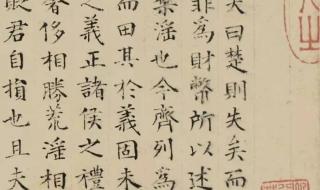 笑曰楚則失矣而
非為財幣所以述
禁淫也今齊列為
而田其於義固未
之義正諸侯之禮
奢侈相勝荒淫相
貶君自損也且夫